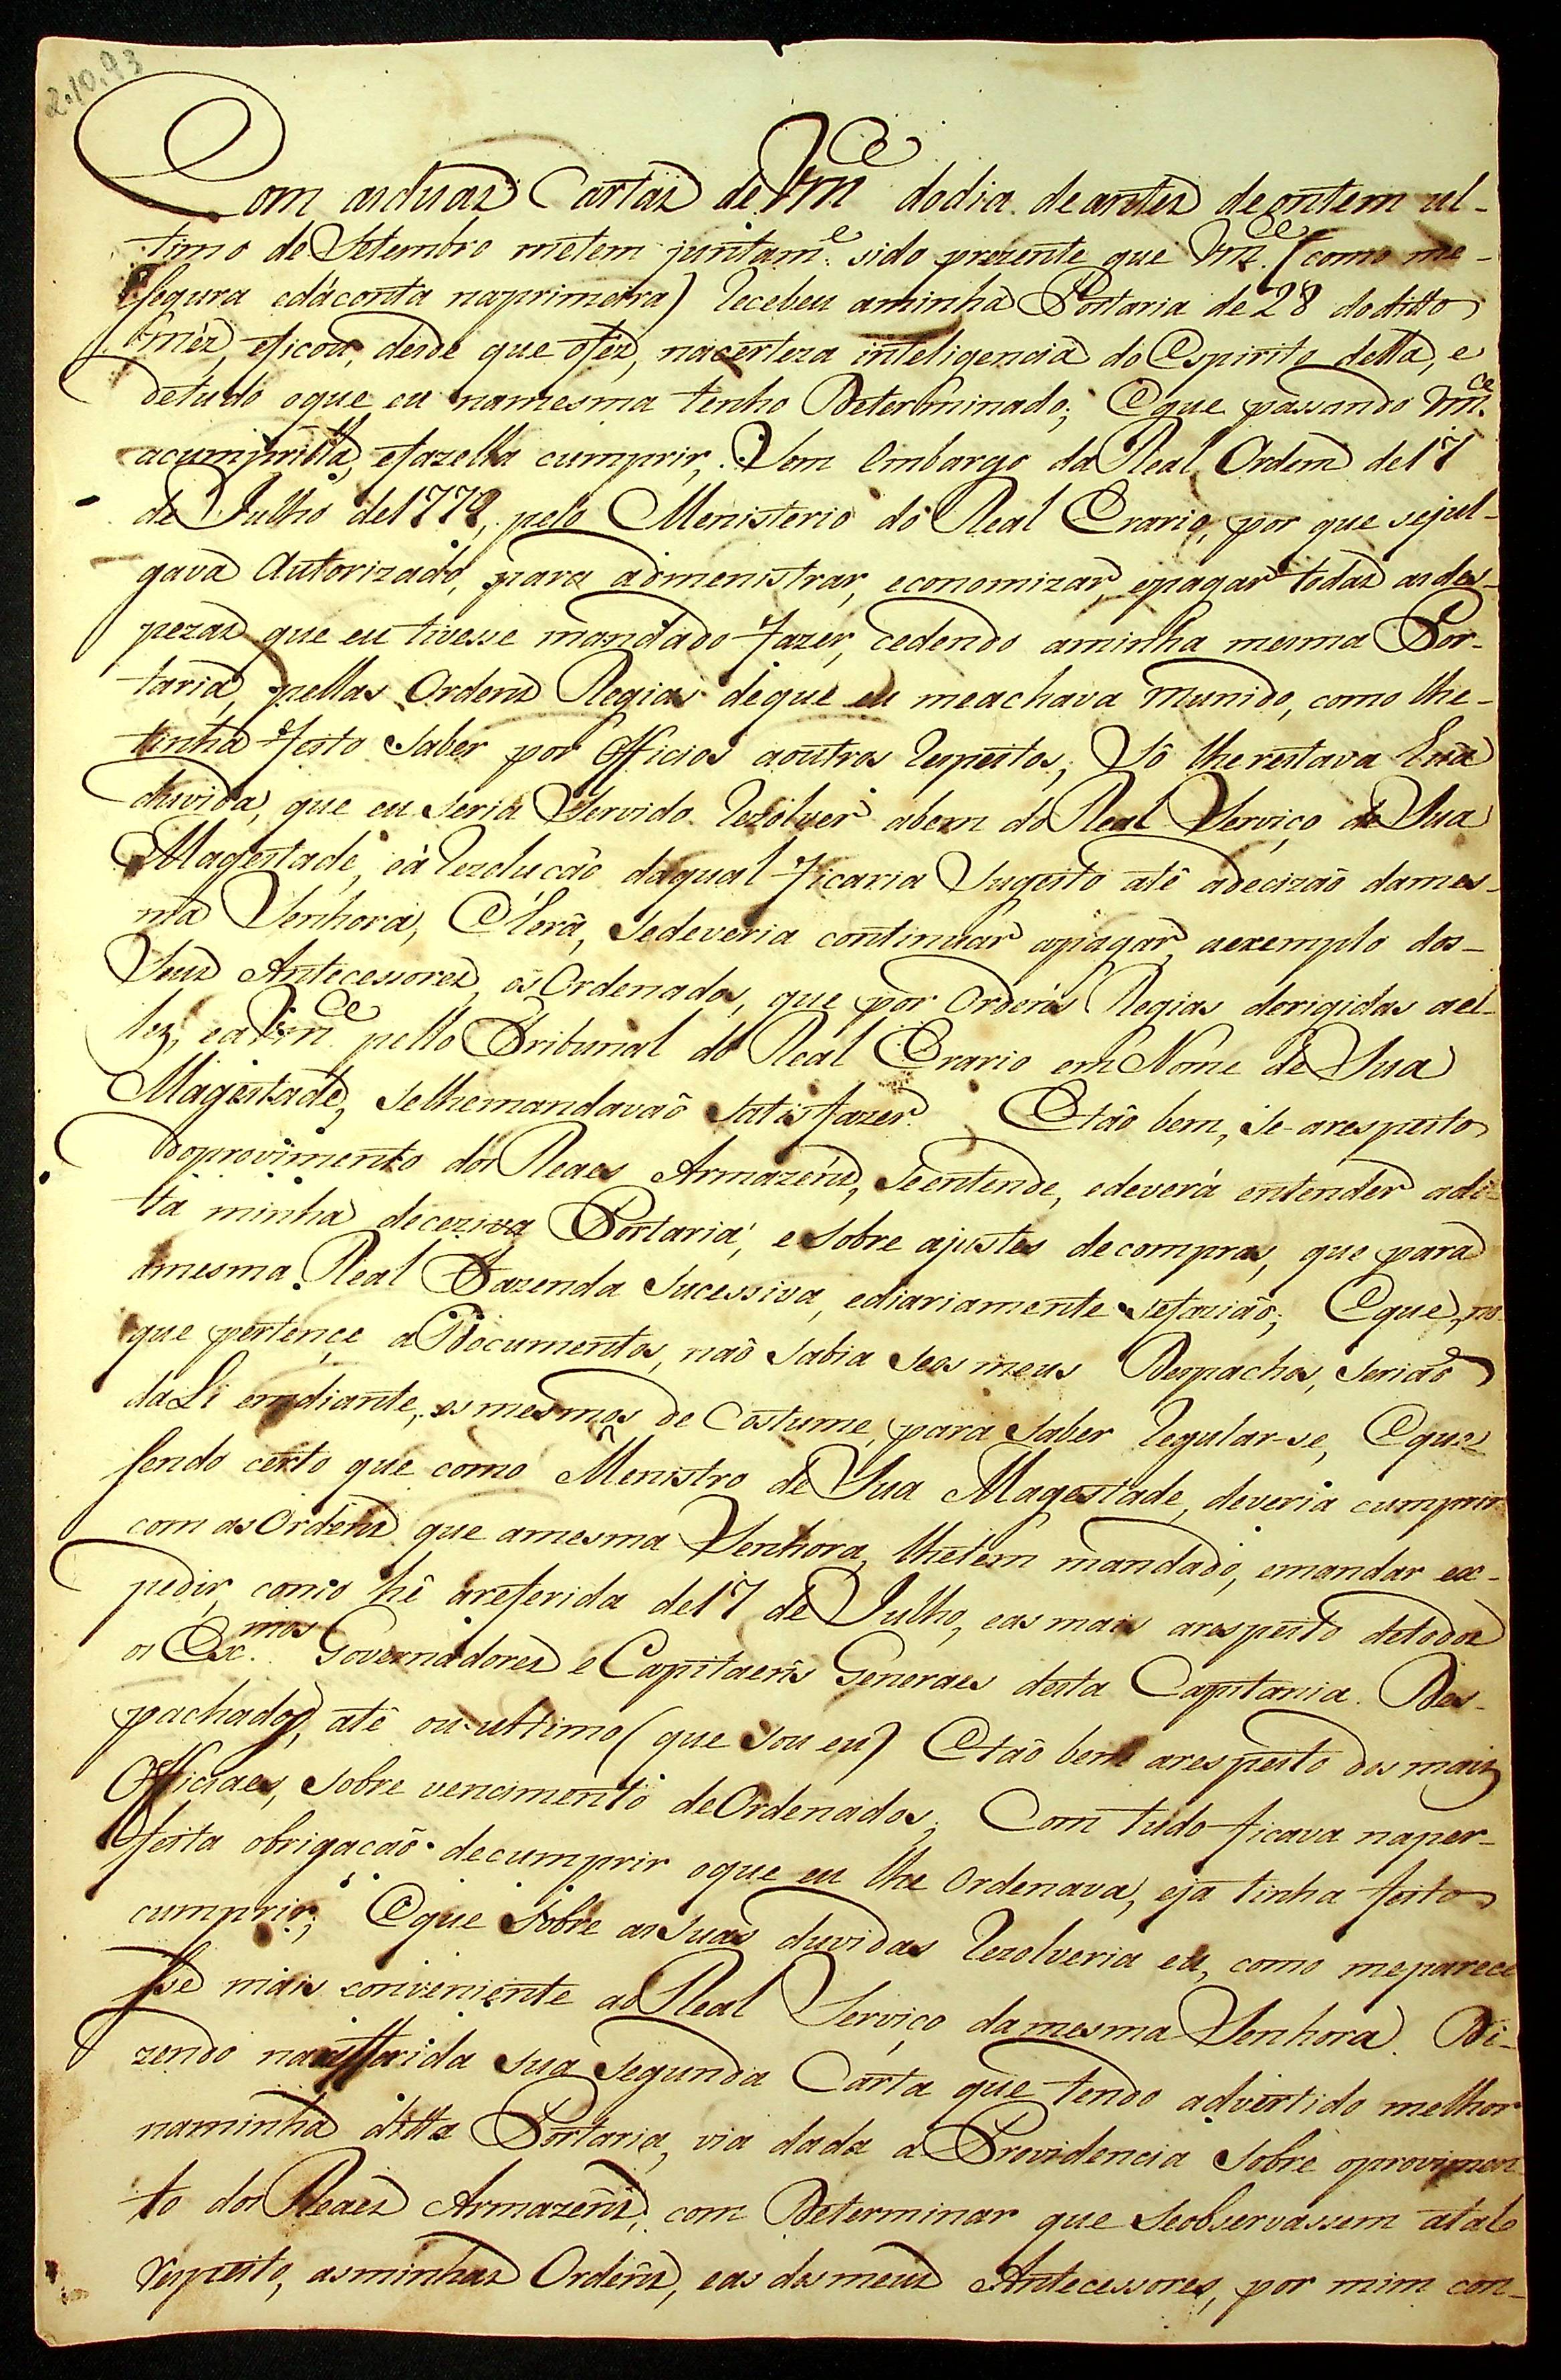 2.10.93
Com as duas Cartas de Vm.ce do dia de antes de ontem ul-
timo de Setembro metem juntam.e sido prezente que Vm.ce (como me-
segura edáconta naprimeira) Recebeu aminha Portaria de 28 do ditto
mêz, eficou, desde que ofêz, nacerteza inteligencia do Espirito della, e
detudo oque eu namesma tenho Determinado; Eque passando Vm.ce
acumprilla, efazella cumprir, Sem Embargo da Real Ordem de 17
de Julho de 1779, pelo Menisterio do Real Erario, por que sejul-
gava Autorizado, para admenistrar, economizar, epagar todas as des-
pezas que eu tivesse mandado fazer, cedendo aminha mesma Por-
taria, pellas Ordens Regias deque eu meachava Munido, como lhe-
tinha feito Saber por Officios aoutros Respeitos; Sô lherestava hũa
duvida, que eu seria Servido Rezolver abem do Real Serviço de Sua
Magestade, eà Rezolução daqual ficaria Sugeito atê adecizão dames-
ma Senhora; E Herâ, Sedeveria continuar apagar aexemplo dos-
Seus Antecessores, os Ordenados, que por Ordens Regias derigidas ael-
les, ea Vm.ce pello Tribunal do Real Erario em Nome de Sua
Magestade, Selhemandavaõ Satisfazer. E tão bem, Se arespeito
doprovimento dos Reaes Armazens, Seentende, edeverá entender adi-
ta minha deceziva Portaria, e Sobre ajustes decompras, que para
amesma Real Fazenda Sucessiva, ediariamente sefazião; Eque, no
que pertençe a Documentos, naõ Sabia Seos meus Despachos, Seriaõ
daLi emdiante, os mesmos de Costume, para Saber Regular-se, Eque
sendo certo que como Menistro de Sua Magestade, deveria cumprir
com as Ordens que amesma Senhora, lhetem mandado, emandar ex-
pedir, como hê areferida de 17 de Julho, eas mais arespeito detodos
os Ex.mos Governadores e Capitaens Generaes desta Capitania. Des-
pachados, atê ou ultimo (que Sou eu) E tão bem arespeito dos mais
Officiaes, Sobre vencimento deOrdenados; Com tudo ficava naper-
feita obrigação decumprir oque eu lhe Ordenava, ejá tinha feito
cumprir; Eque Sobre as Suas duvidas Rezolveria eu, como meparece
sse mais conveniente ao Real Serviço damesma Senhora. Di-
zendo nareferida sua Segunda Carta que tendo advertido melhor
naminha ditta Portaria, via dada a Providencia Sobre oprovimen
to dos Reaes Armazens; com Determinar que Seobservassem atal
respeito, asminhas Ordens, eas dosmeus Antecessores, por mim con-